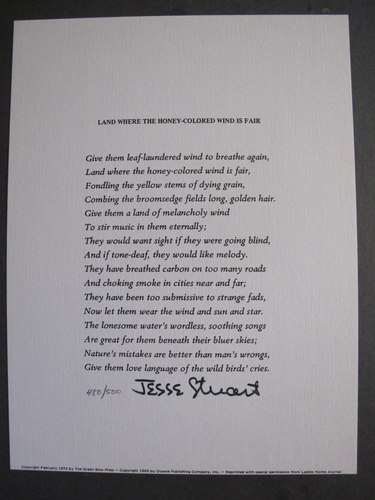 LAND WHERE THE HONEY-COLORED WIND IS FAIR
Give them leaf-laundered wind to breathe again,
Land where the honey-colored wind is fair,
Fondling the yellow stems of dying grain,
Combing the broomsedge fields long, golden hair.
Give them a land of melancholy wind
To stir music in them eternally;
They would want sight if they were going blind,
And if tone-deaf, they would like melody.
They have breathed carbon on too many roads
And choking smoke in cities near and far;
They have been too submissive to strange fads,
Now let them wear the wind and sun and star.
The lonesome water's wordless, soothing songs
Are great for them beneath their bluer skies;
Nature's mistakes are better than man's wrongs,
Give them love language of the wild birds' cries.
480/500 JESSE Stuart
Copyright February 1970 by The Green Bow Press — Copyright 1969 by Downe Publishing Company, Inc. — Reprinted with special permission from Ladies Home Journal